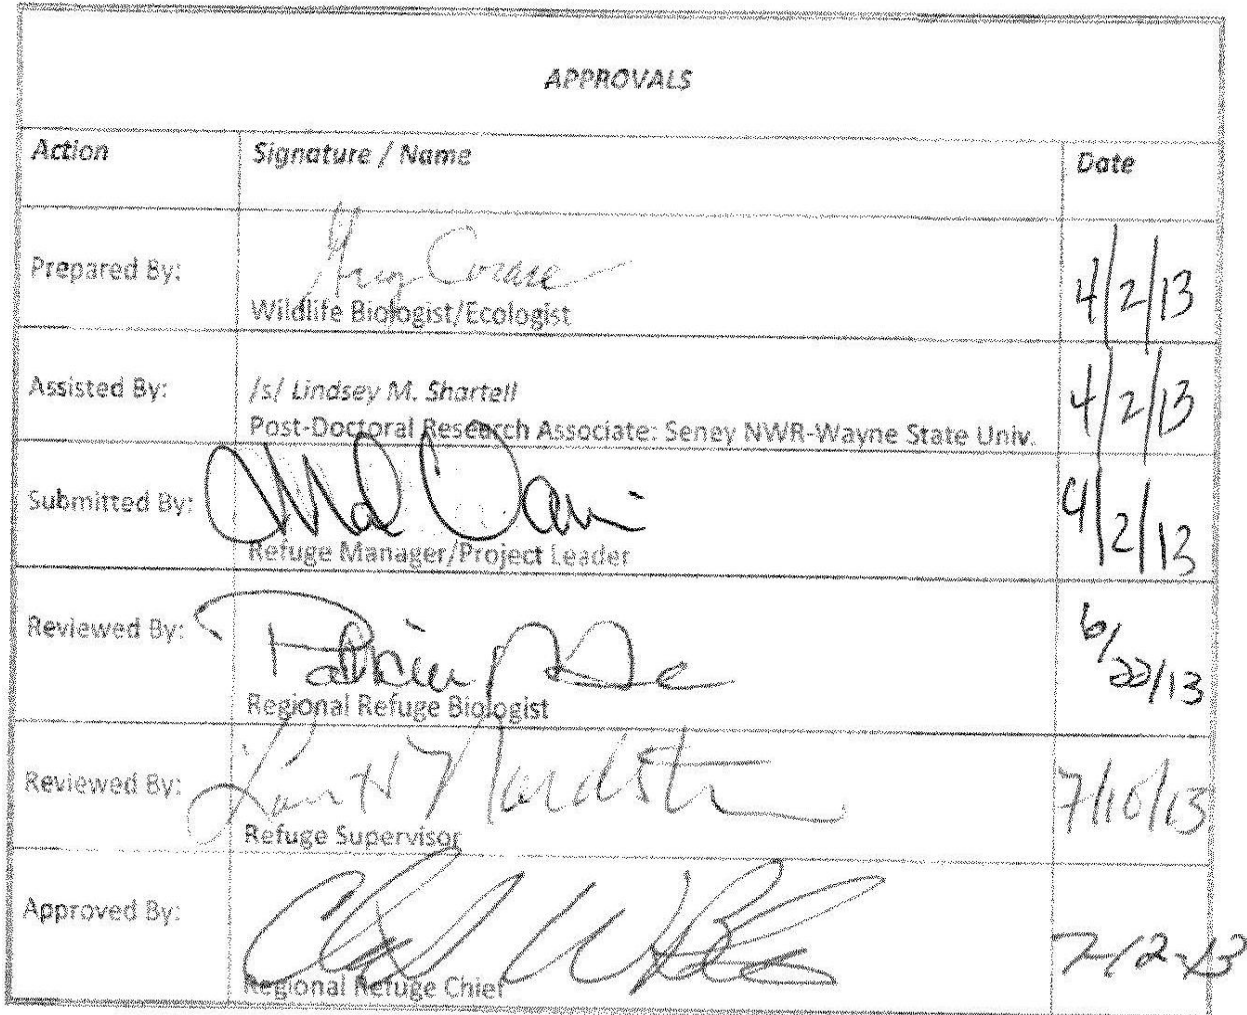 APPROVALS
Action Signature / Name Date
Prepared By: Greg Corace 4/2/13
Wildlife Biologist/Ecologist
Assisted By: /s/ Lindsey M. Shartell 4/2/13
Post-Doctoral Research Associate: Seney NWR-Wayne State Univ.
Submitted By: 4/2/13
Refuge Manager/Project Leader
Reviewed By: Patricia 6/22/13
Regional Refuge Biologist
Reviewed By: 7/10/13
Refuge Supervisor
Approved By: 7-12-13
Regional Refuge Chief